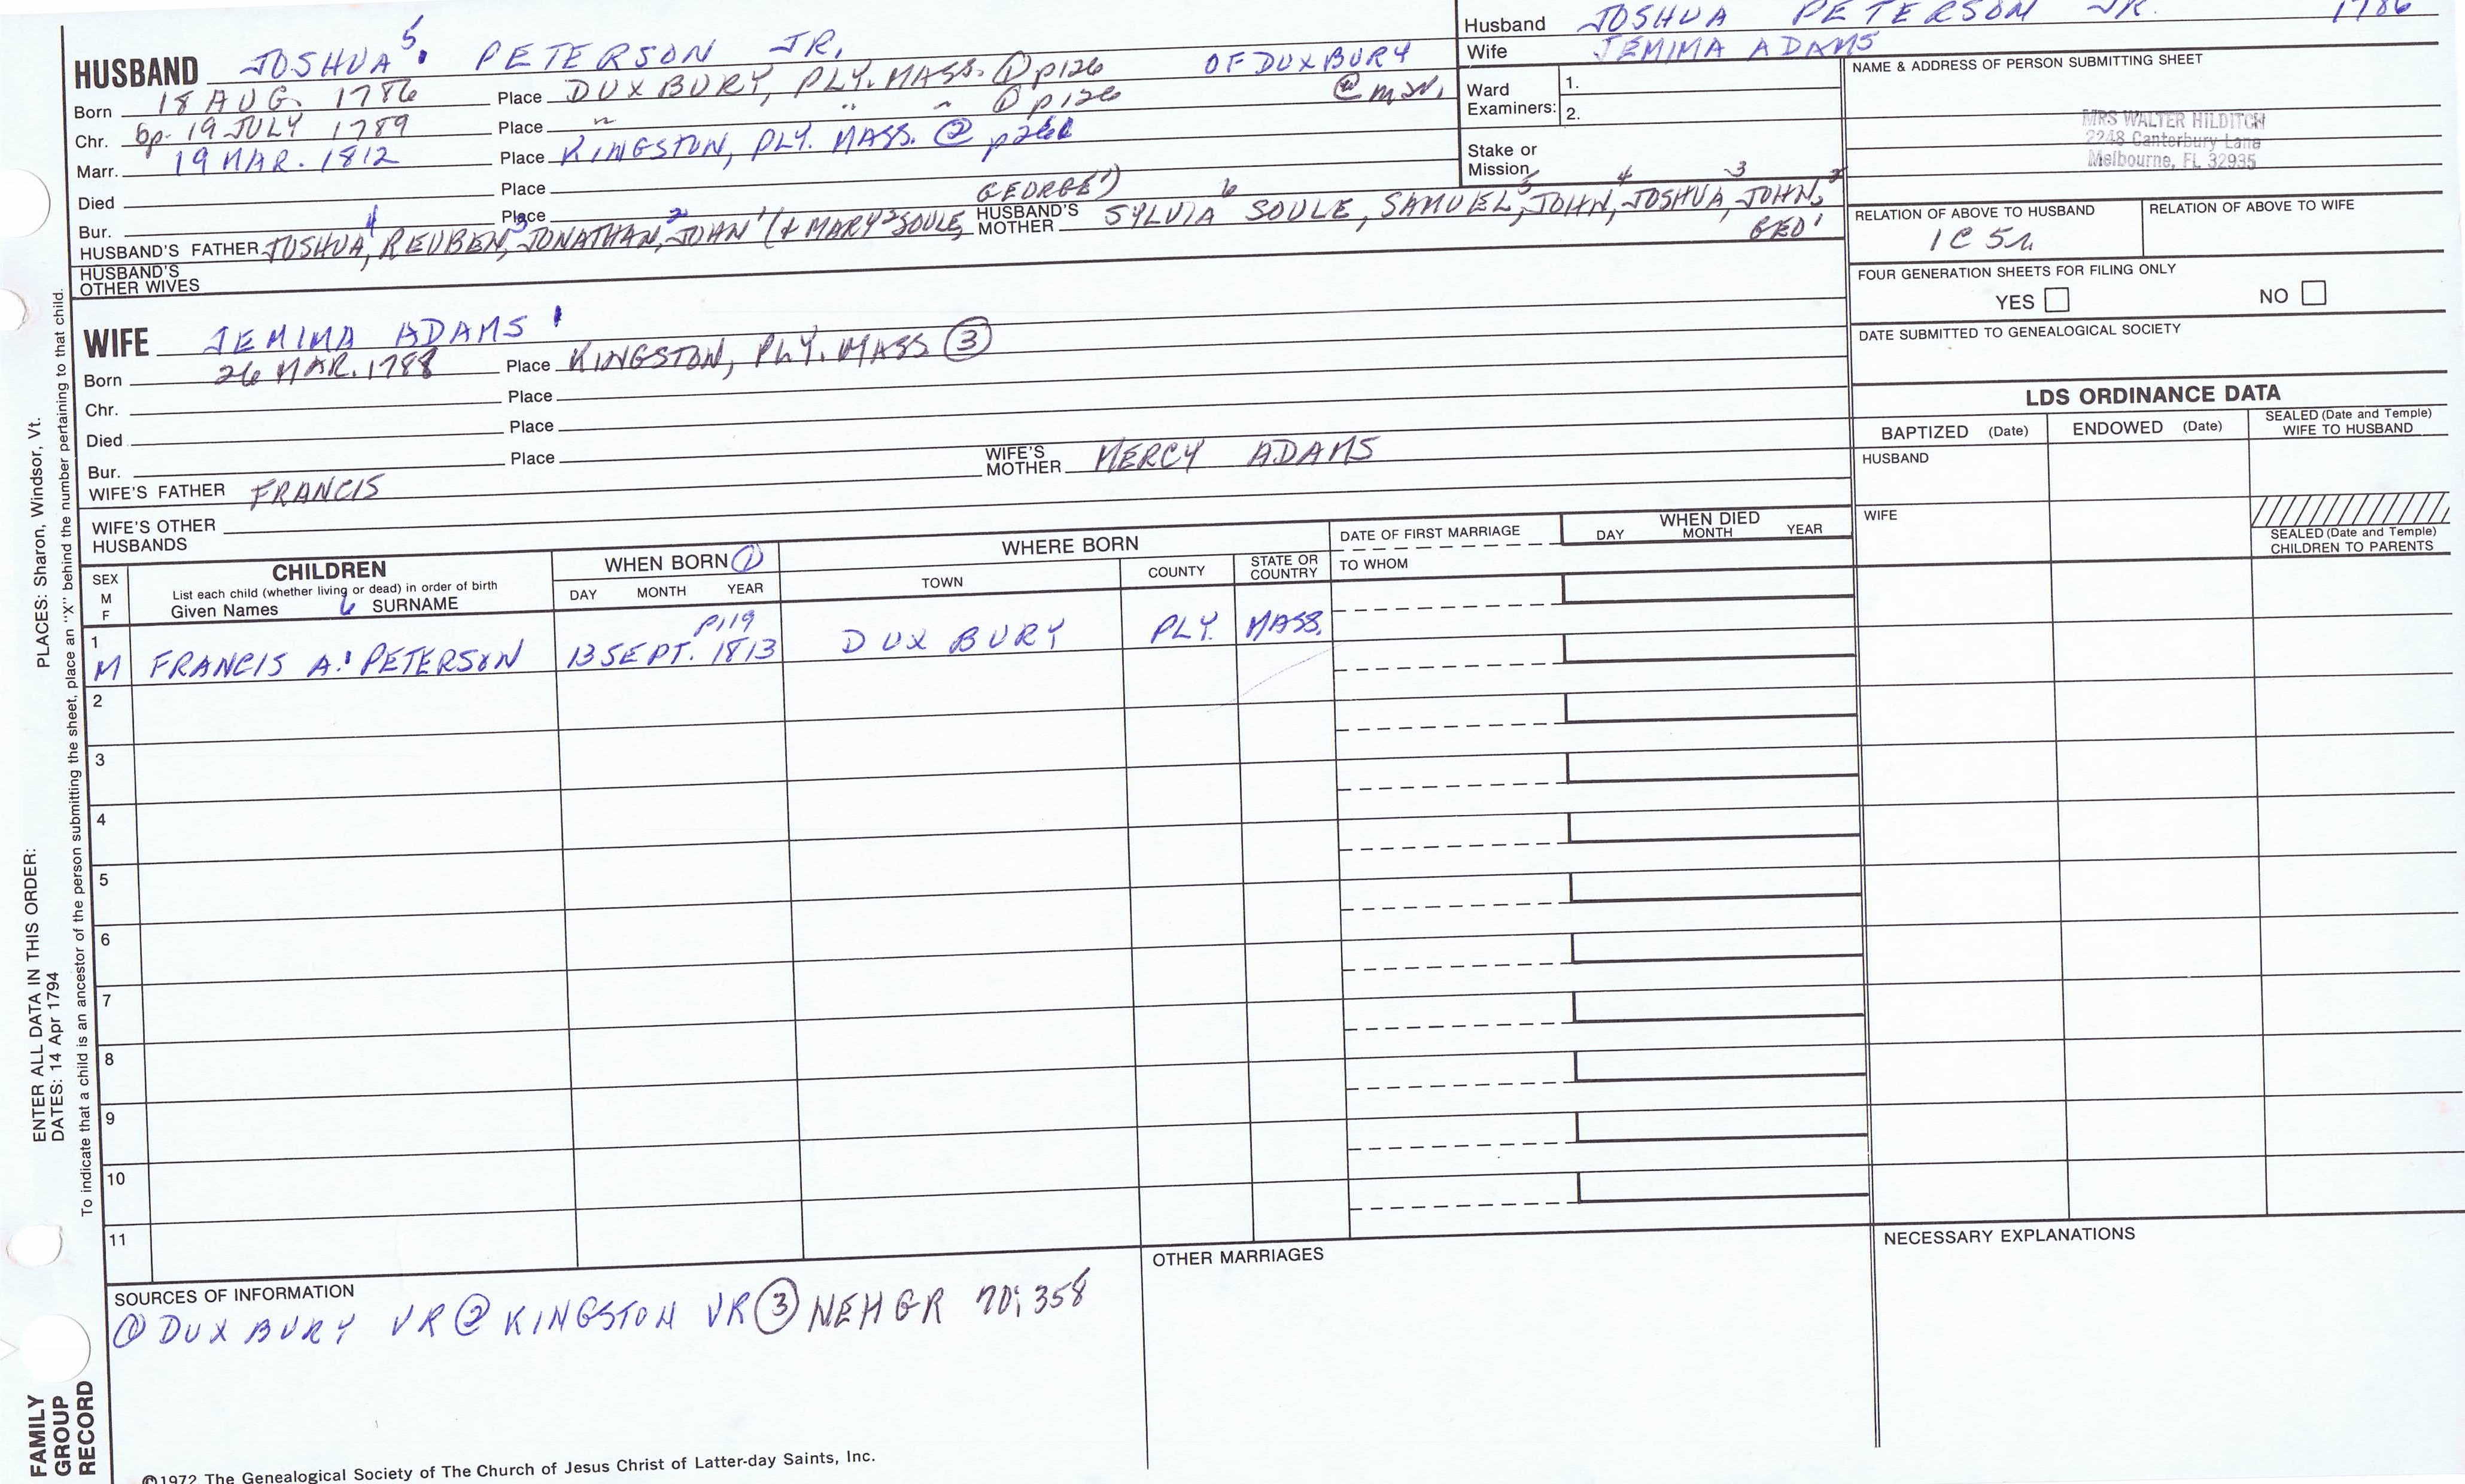 HUSBAND JOSHUA 5. PETERSON JR.
Born 18 AUG. 1786 Place DUXBURY, PLY. MASS. ① p126 OF DUXBURY
Chr. bp. 19 JULY 1789 Place " " " ① p126 @ m
Marr. 19 MAR. 1812 Place KINGSTON, PLY. MASS. ②
Died Place
Bur. Place
HUSBAND'S FATHER JOSHUA 4, REUBEN 3, JONATHAN 2, JOHN 1 (& MARY 2 SOULE, GEORGE 1)
HUSBAND'S MOTHER SYLVIA 6 SOULE, SAMUEL 5, JOHN 4, JOSHUA 3, JOHN 2, GEO 1
HUSBAND'S OTHER WIVES
Husband JOSHUA PETERSON JR. 1786
Wife JEMIMA ADAMS
Ward Examiners: 1.
2.
Stake or Mission
NAME & ADDRESS OF PERSON SUBMITTING SHEET
MRS WALTER HILDITCH
2248 Canterbury Lane
Melbourne, FL 32935
RELATION OF ABOVE TO HUSBAND
RELATION OF ABOVE TO WIFE
1C 5r.
FOUR GENERATION SHEETS FOR FILING ONLY
YES NO
DATE SUBMITTED TO GENEALOGICAL SOCIETY
WIFE JEMIMA ADAMS
Born 26 MAR. 1788 Place KINGSTON, PLY. MASS ③
Chr. Place
Died Place
Bur. Place
WIFE'S FATHER FRANCIS
WIFE'S MOTHER MERCY ADAMS
WIFE'S OTHER HUSBANDS
LDS ORDINANCE DATA
BAPTIZED (Date) ENDOWED (Date) SEALED (Date and Temple) WIFE TO HUSBAND
HUSBAND
WIFE
SEALED (Date and Temple) CHILDREN TO PARENTS
SEX M F
CHILDREN
List each child (whether living or dead) in order of birth
Given Names 6 SURNAME
WHEN BORN ①
DAY MONTH YEAR
WHERE BORN
TOWN COUNTY STATE OR COUNTRY
DATE OF FIRST MARRIAGE
TO WHOM
WHEN DIED
DAY MONTH YEAR
p119
1 M FRANCIS A. PETERSON 13 SEPT. 1813 DUXBURY PLY. MASS.
2
3
4
5
6
7
8
9
10
11
SOURCES OF INFORMATION
① DUXBURY VR ② KINGSTON VR ③ NEHGR 70; 358
OTHER MARRIAGES
NECESSARY EXPLANATIONS
©1972 The Genealogical Society of The Church of Jesus Christ of Latter-day Saints, Inc.
FAMILY GROUP RECORD
ENTER ALL DATA IN THIS ORDER:
DATES: 14 Apr 1794
PLACES: Sharon, Windsor, Vt.
To indicate that a child is an ancestor of the person submitting the sheet, place an "X" behind the number pertaining to that child.